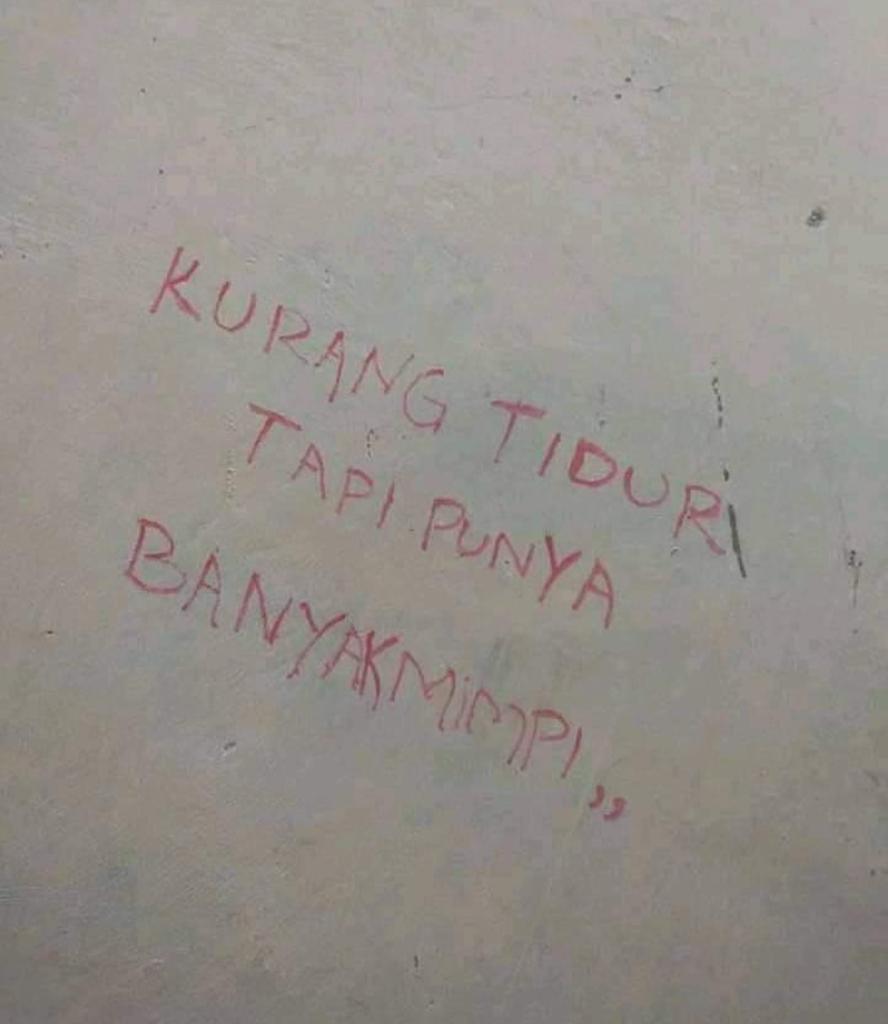 KURANG TIDUR
TAPI PUNYA
BANYAK MIMPI,,